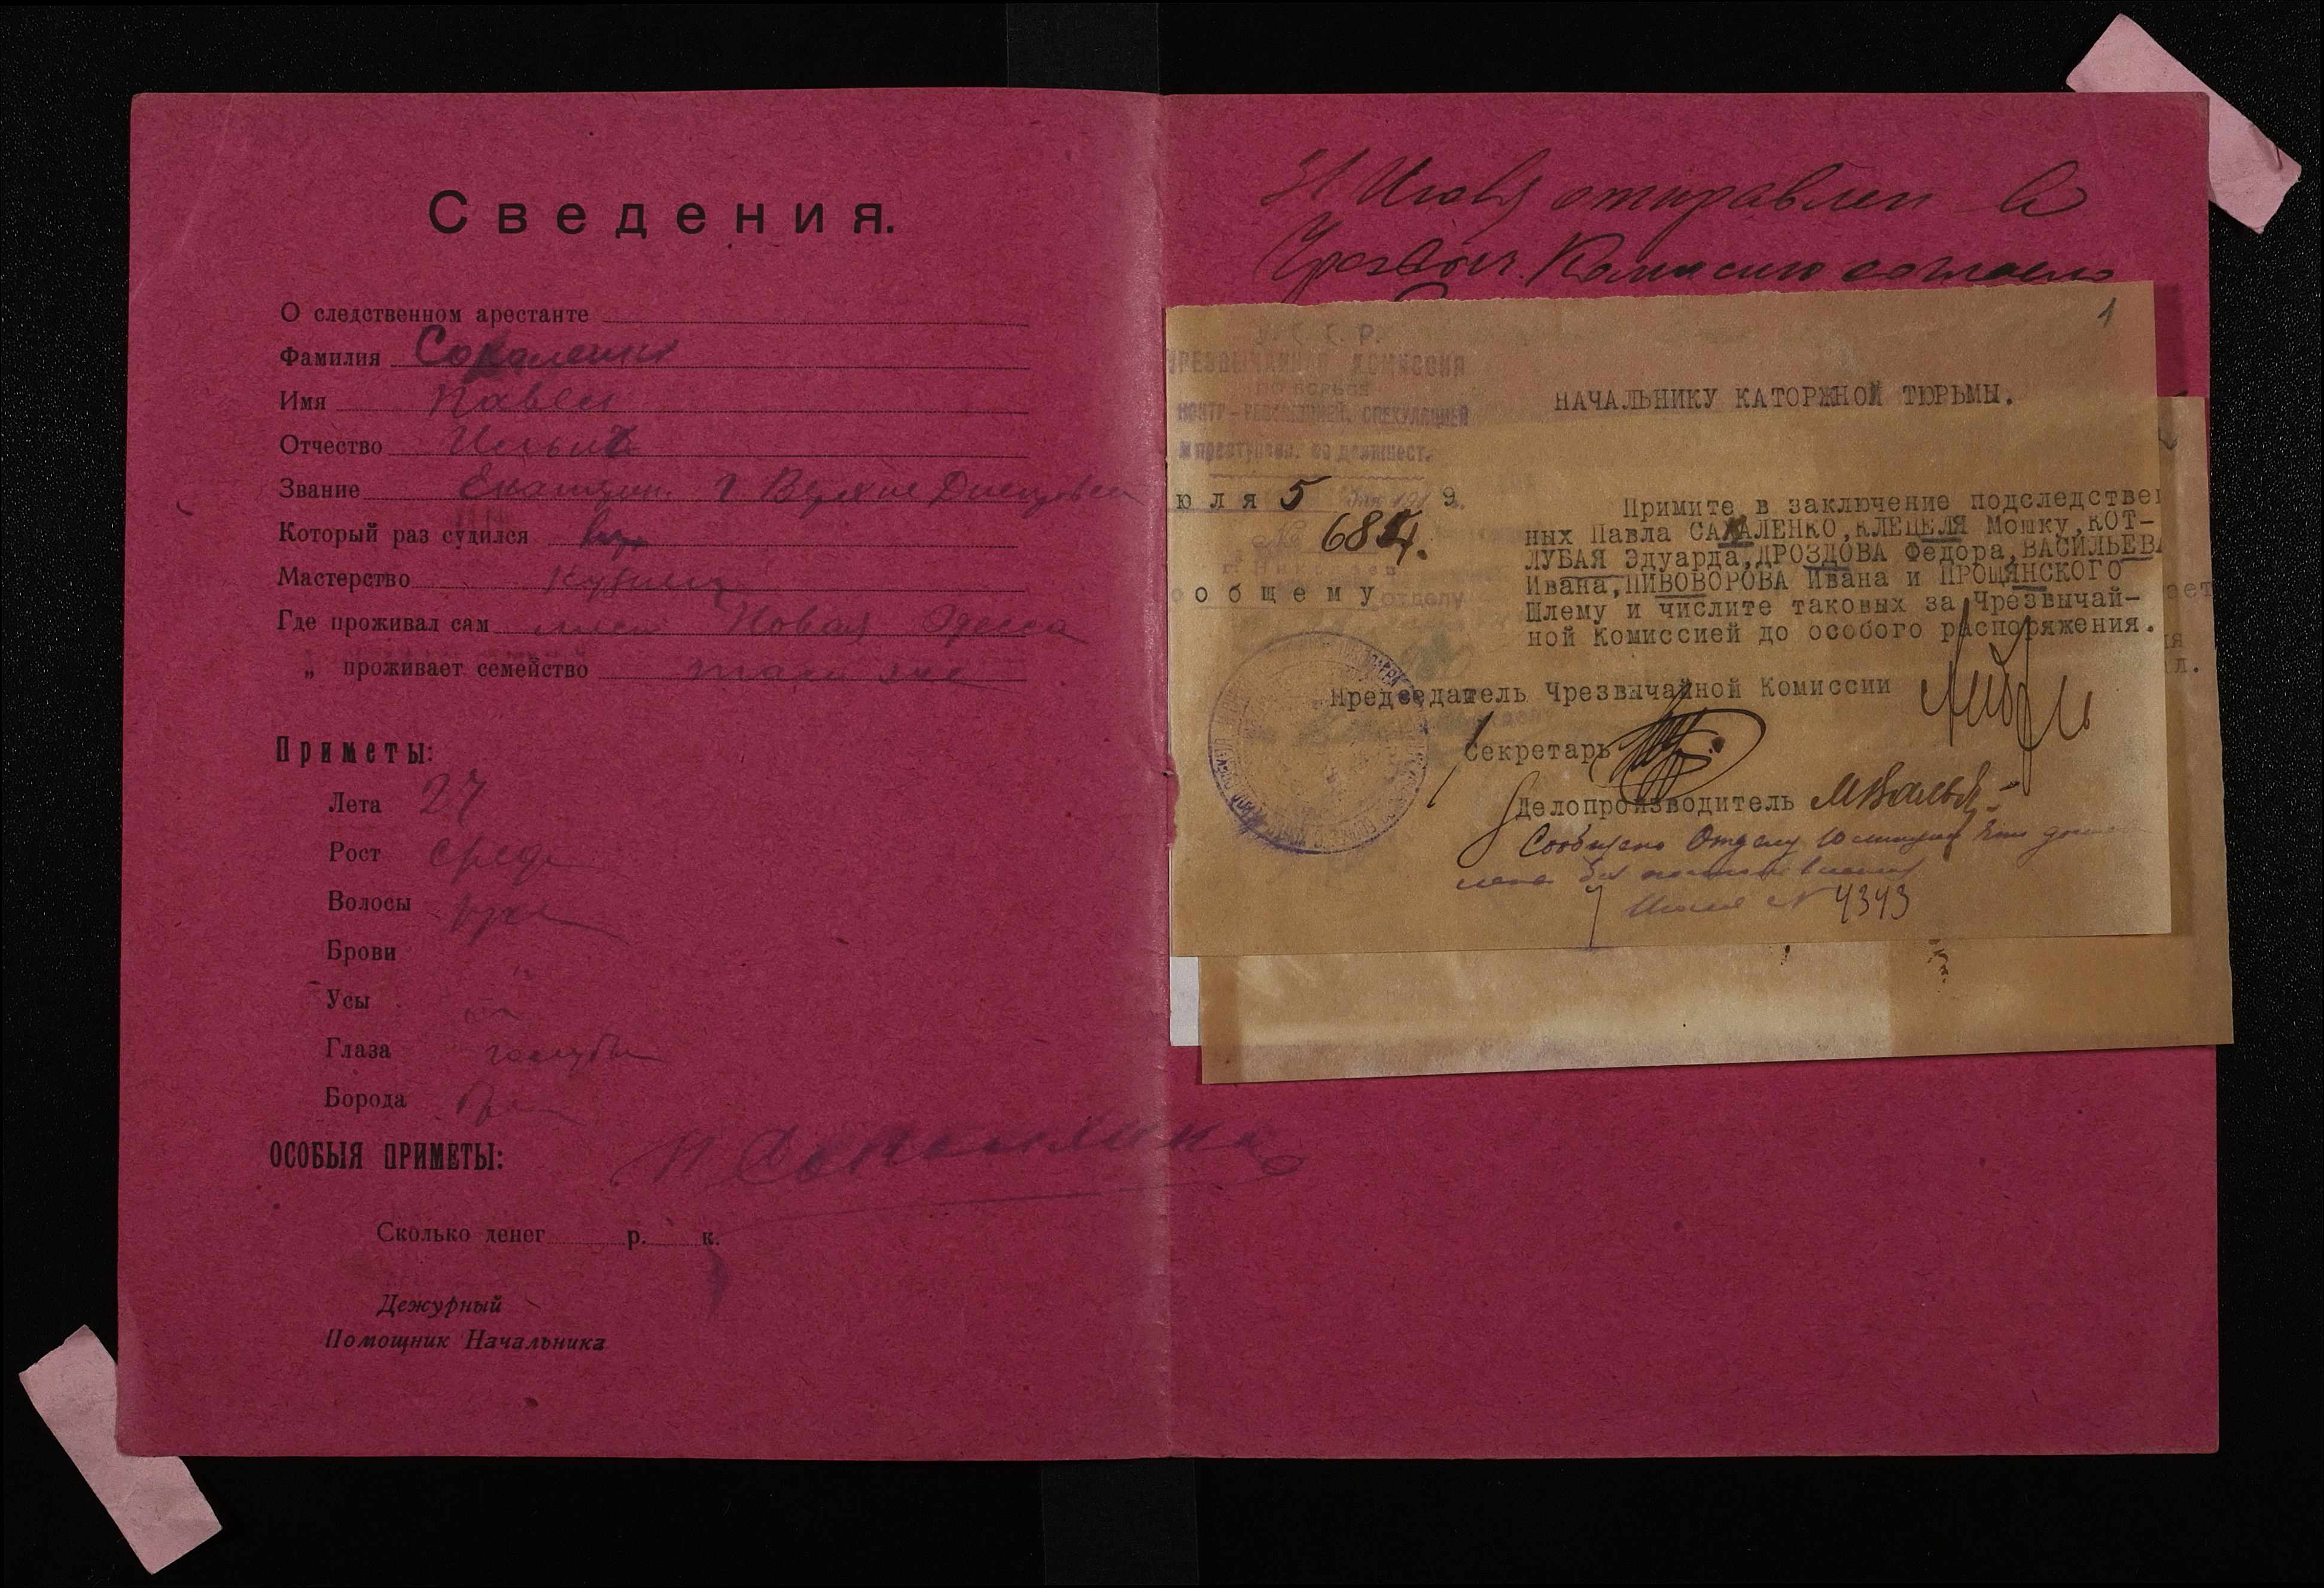 Сведения.
О следственном арестанте
Фамилия Сохаленко
Имя Павел
Отчество Ильич
Звание Екатерин. г Верхне Днепровск
Который раз судился
Мастерство Кузнец
Где проживал сам Новая Одесса
„ проживает семейство там же
Приметы:
Лета 27
Рост средн
Волосы рус
Брови
Усы
Глаза голубы
Борода
ОСОБЫЯ ПРИМЕТЫ:
Сколько денег р. к.
Дежурный
Помощник Начальника
31 Июля отправлен в
Чрезвыч. Комисию согласно
1
У. С. С. Р.
ЧРЕЗВЫЧАЙНАЯ КОМИССИЯ
ПО БОРЬБЕ
КОНТР-РЕВОЛЮЦИЕЙ, СПЕКУЛЯЦИЕЙ
и преступлен. по должност.
юля 5 9
№ 684.
г. Николаев
общему отделу
НАЧАЛЬНИКУ КАТОРЖНОЙ ТЮРЬМЫ.
Примите в заключение подследствен
ных Павла САХАЛЕНКО,КЛЕЦЕЛЯ Мошку,КОТ-
ЛУБАЯ Эдуарда,ДРОЗДОВА Федора,ВАСИЛЬЕВА
Ивана,ПИВОВОРОВА Ивана и ПРОЩЯНСКОГО
Шлему и числите таковых за Чрезвычай-
ной Комиссией до особого распоряжения.
Председатель Чрезвычайной Комиссии
Секретарь
Делопроизводитель
Сообщено Отделу Юстиции
Июля № 4343